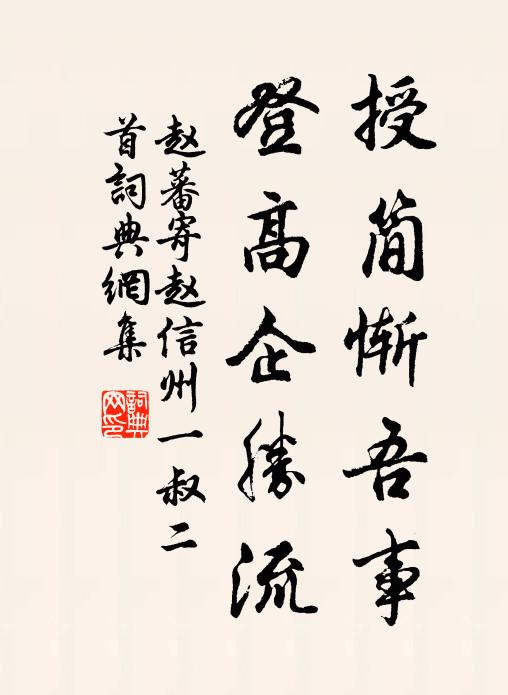 授简慚吾事
登高企勝流
赵蕃寄赵信州一叔二
首詞典網集
詞典网印